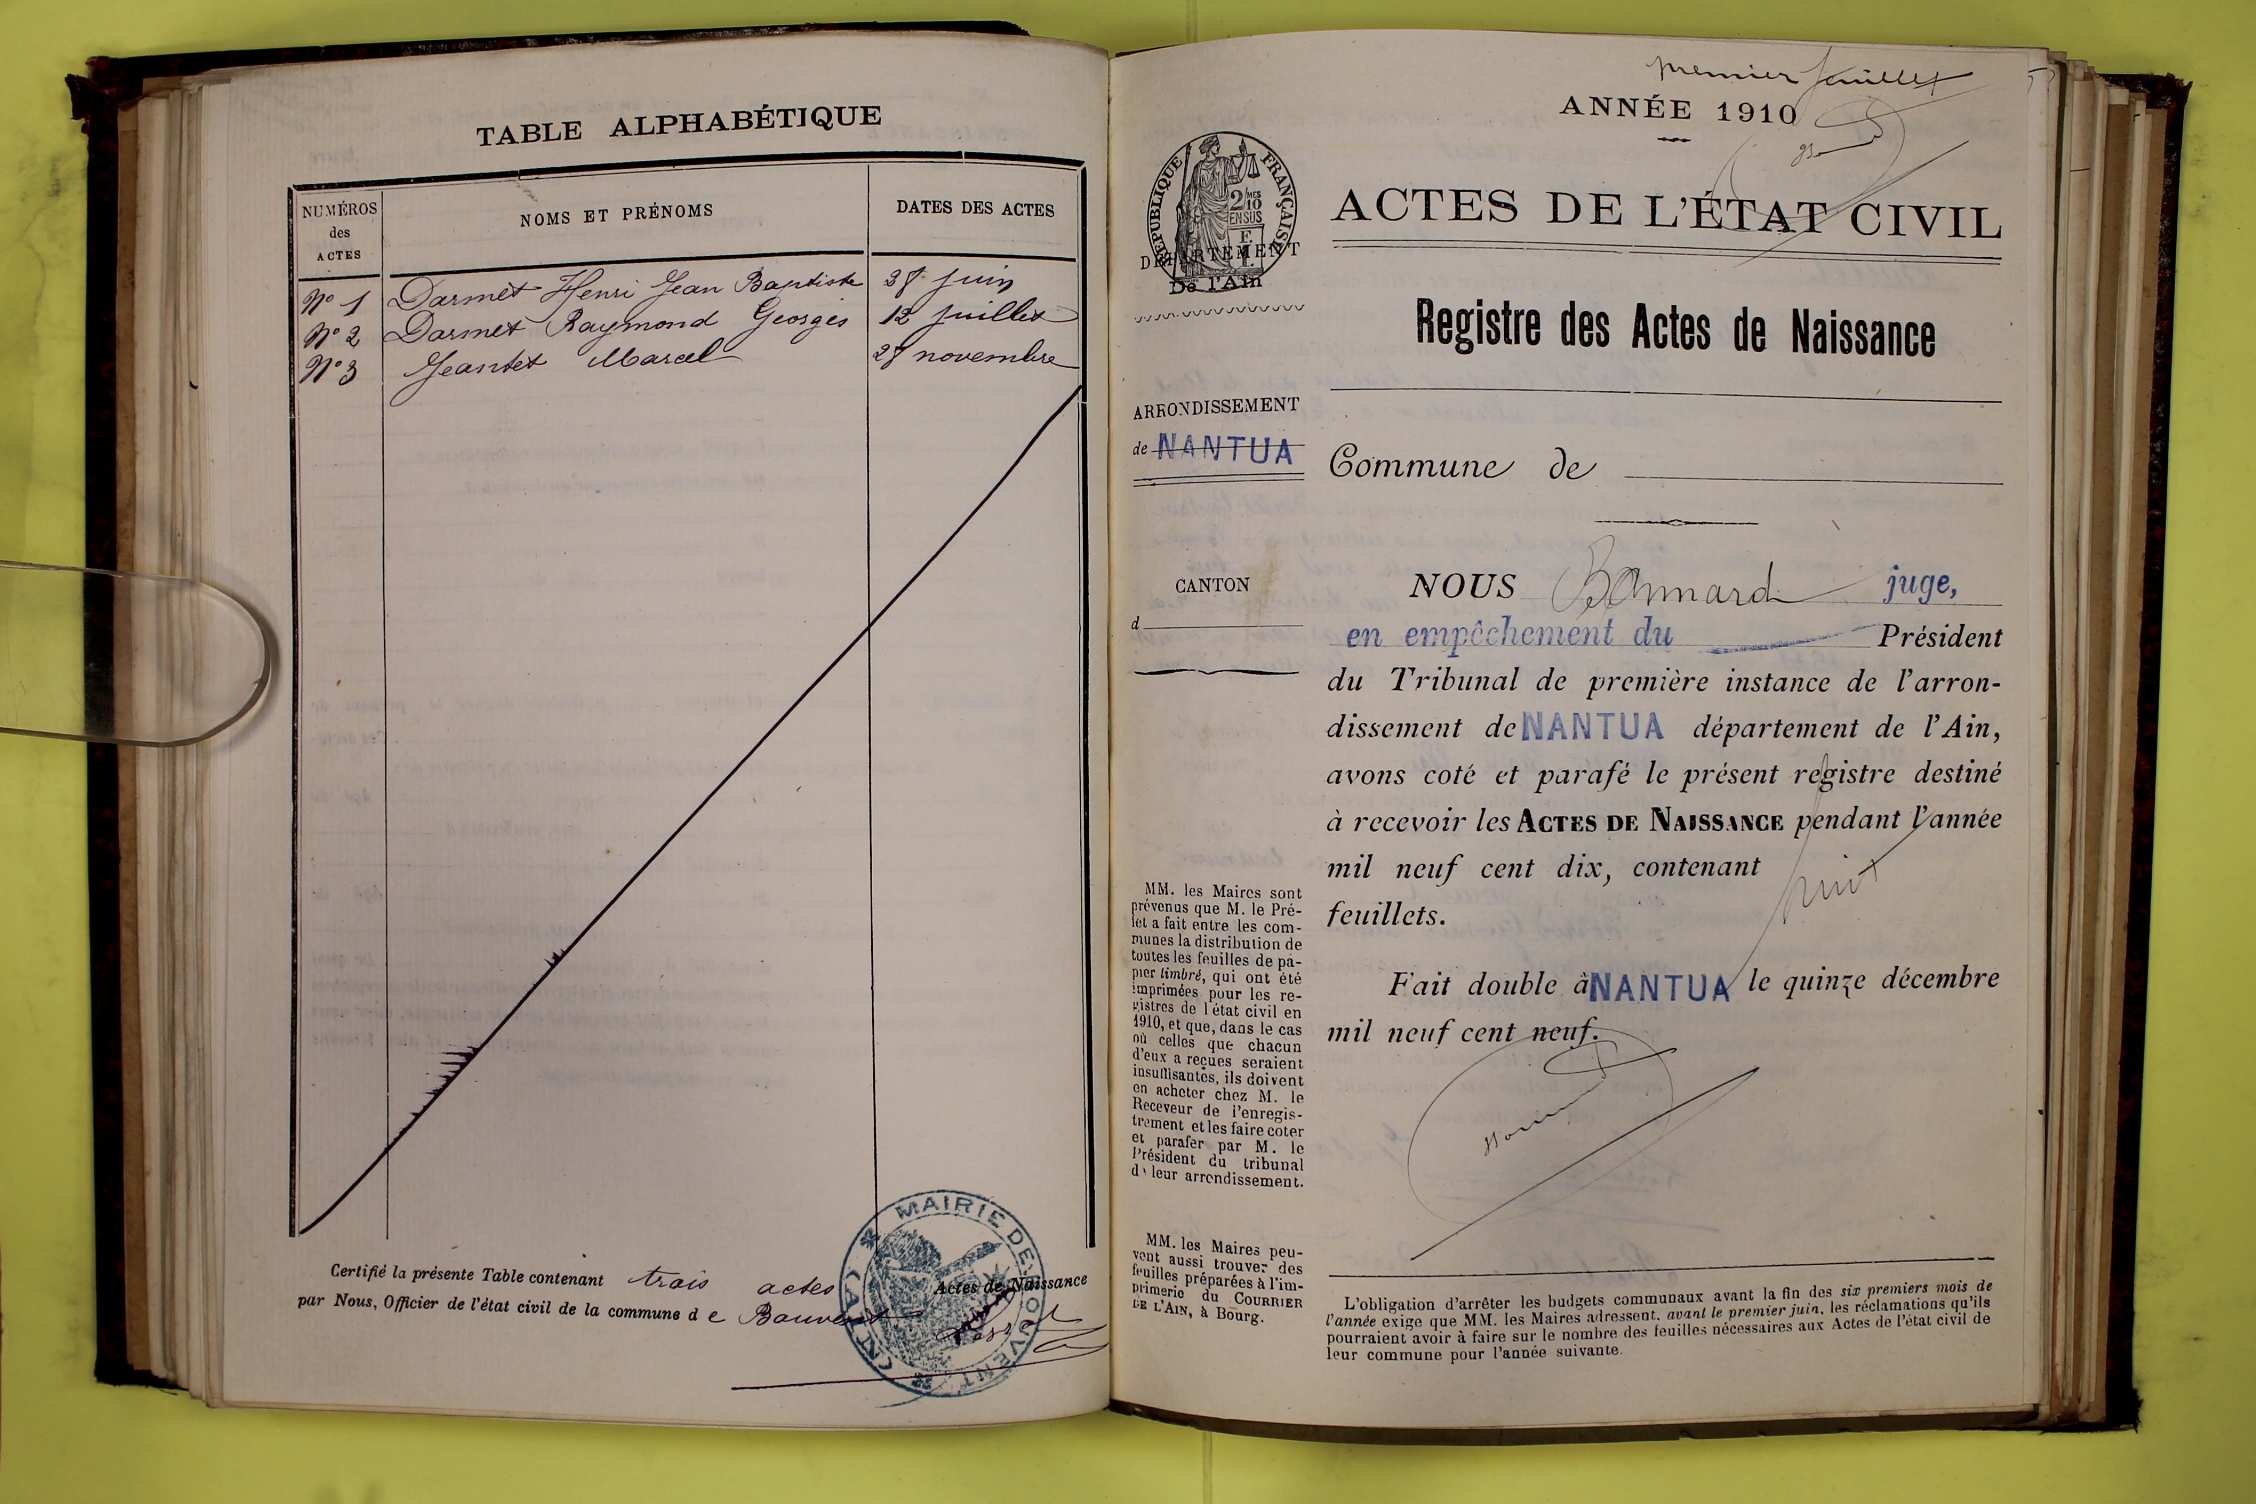 TABLE ALPHABÉTIQUE
NUMÉROS des ACTES
NOMS ET PRÉNOMS
DATES DES ACTES
N° 1 Darmet Henri Jean Baptiste 28 juin
N° 2 Darmet Raymond Georges 12 juillet
N° 3 Jeantet Marcel 28 novembre
Certifié la présente Table contenant trois actes Actes de Naissance
par Nous, Officier de l'état civil de la commune d e Bouvent
MAIRIE DE BOUVENT (AIN)
premier feuillet
ANNÉE 1910
RÉPUBLIQUE FRANÇAISE
2/10 MES EN SUS
DÉPARTEMENT
De l'Ain
ACTES DE L'ÉTAT CIVIL
Registre des Actes de Naissance
ARRONDISSEMENT
de NANTUA
Commune de
CANTON
d
NOUS Bonnard juge,
en empêchement du Président
du Tribunal de première instance de l'arron-
dissement de NANTUA département de l'Ain,
avons coté et parafé le présent registre destiné
à recevoir les ACTES DE NAISSANCE pendant l'année
mil neuf cent dix, contenant huit
feuillets.
Fait double à NANTUA le quinze décembre
mil neuf cent neuf.
MM. les Maires sont
prévenus que M. le Pré-
fet a fait entre les com-
munes la distribution de
toutes les feuilles de pa-
pier timbré, qui ont été
imprimées pour les re-
gistres de l'état civil en
1910, et que, dans le cas
où celles que chacun
d'eux a reçues seraient
insuffisantes, ils doivent
en acheter chez M. le
Receveur de l'enregis-
trement et les faire coter
et parafer par M. le
Président du tribunal
de leur arrondissement.
MM. les Maires peu-
vent aussi trouver des
feuilles préparées à l'im-
primerie du COURRIER
DE L'AIN, à Bourg.
L'obligation d'arrêter les budgets communaux avant la fin des six premiers mois de
l'année exige que MM. les Maires adressent, avant le premier juin, les réclamations qu'ils
pourraient avoir à faire sur le nombre des feuilles nécessaires aux Actes de l'état civil de
leur commune pour l'année suivante.